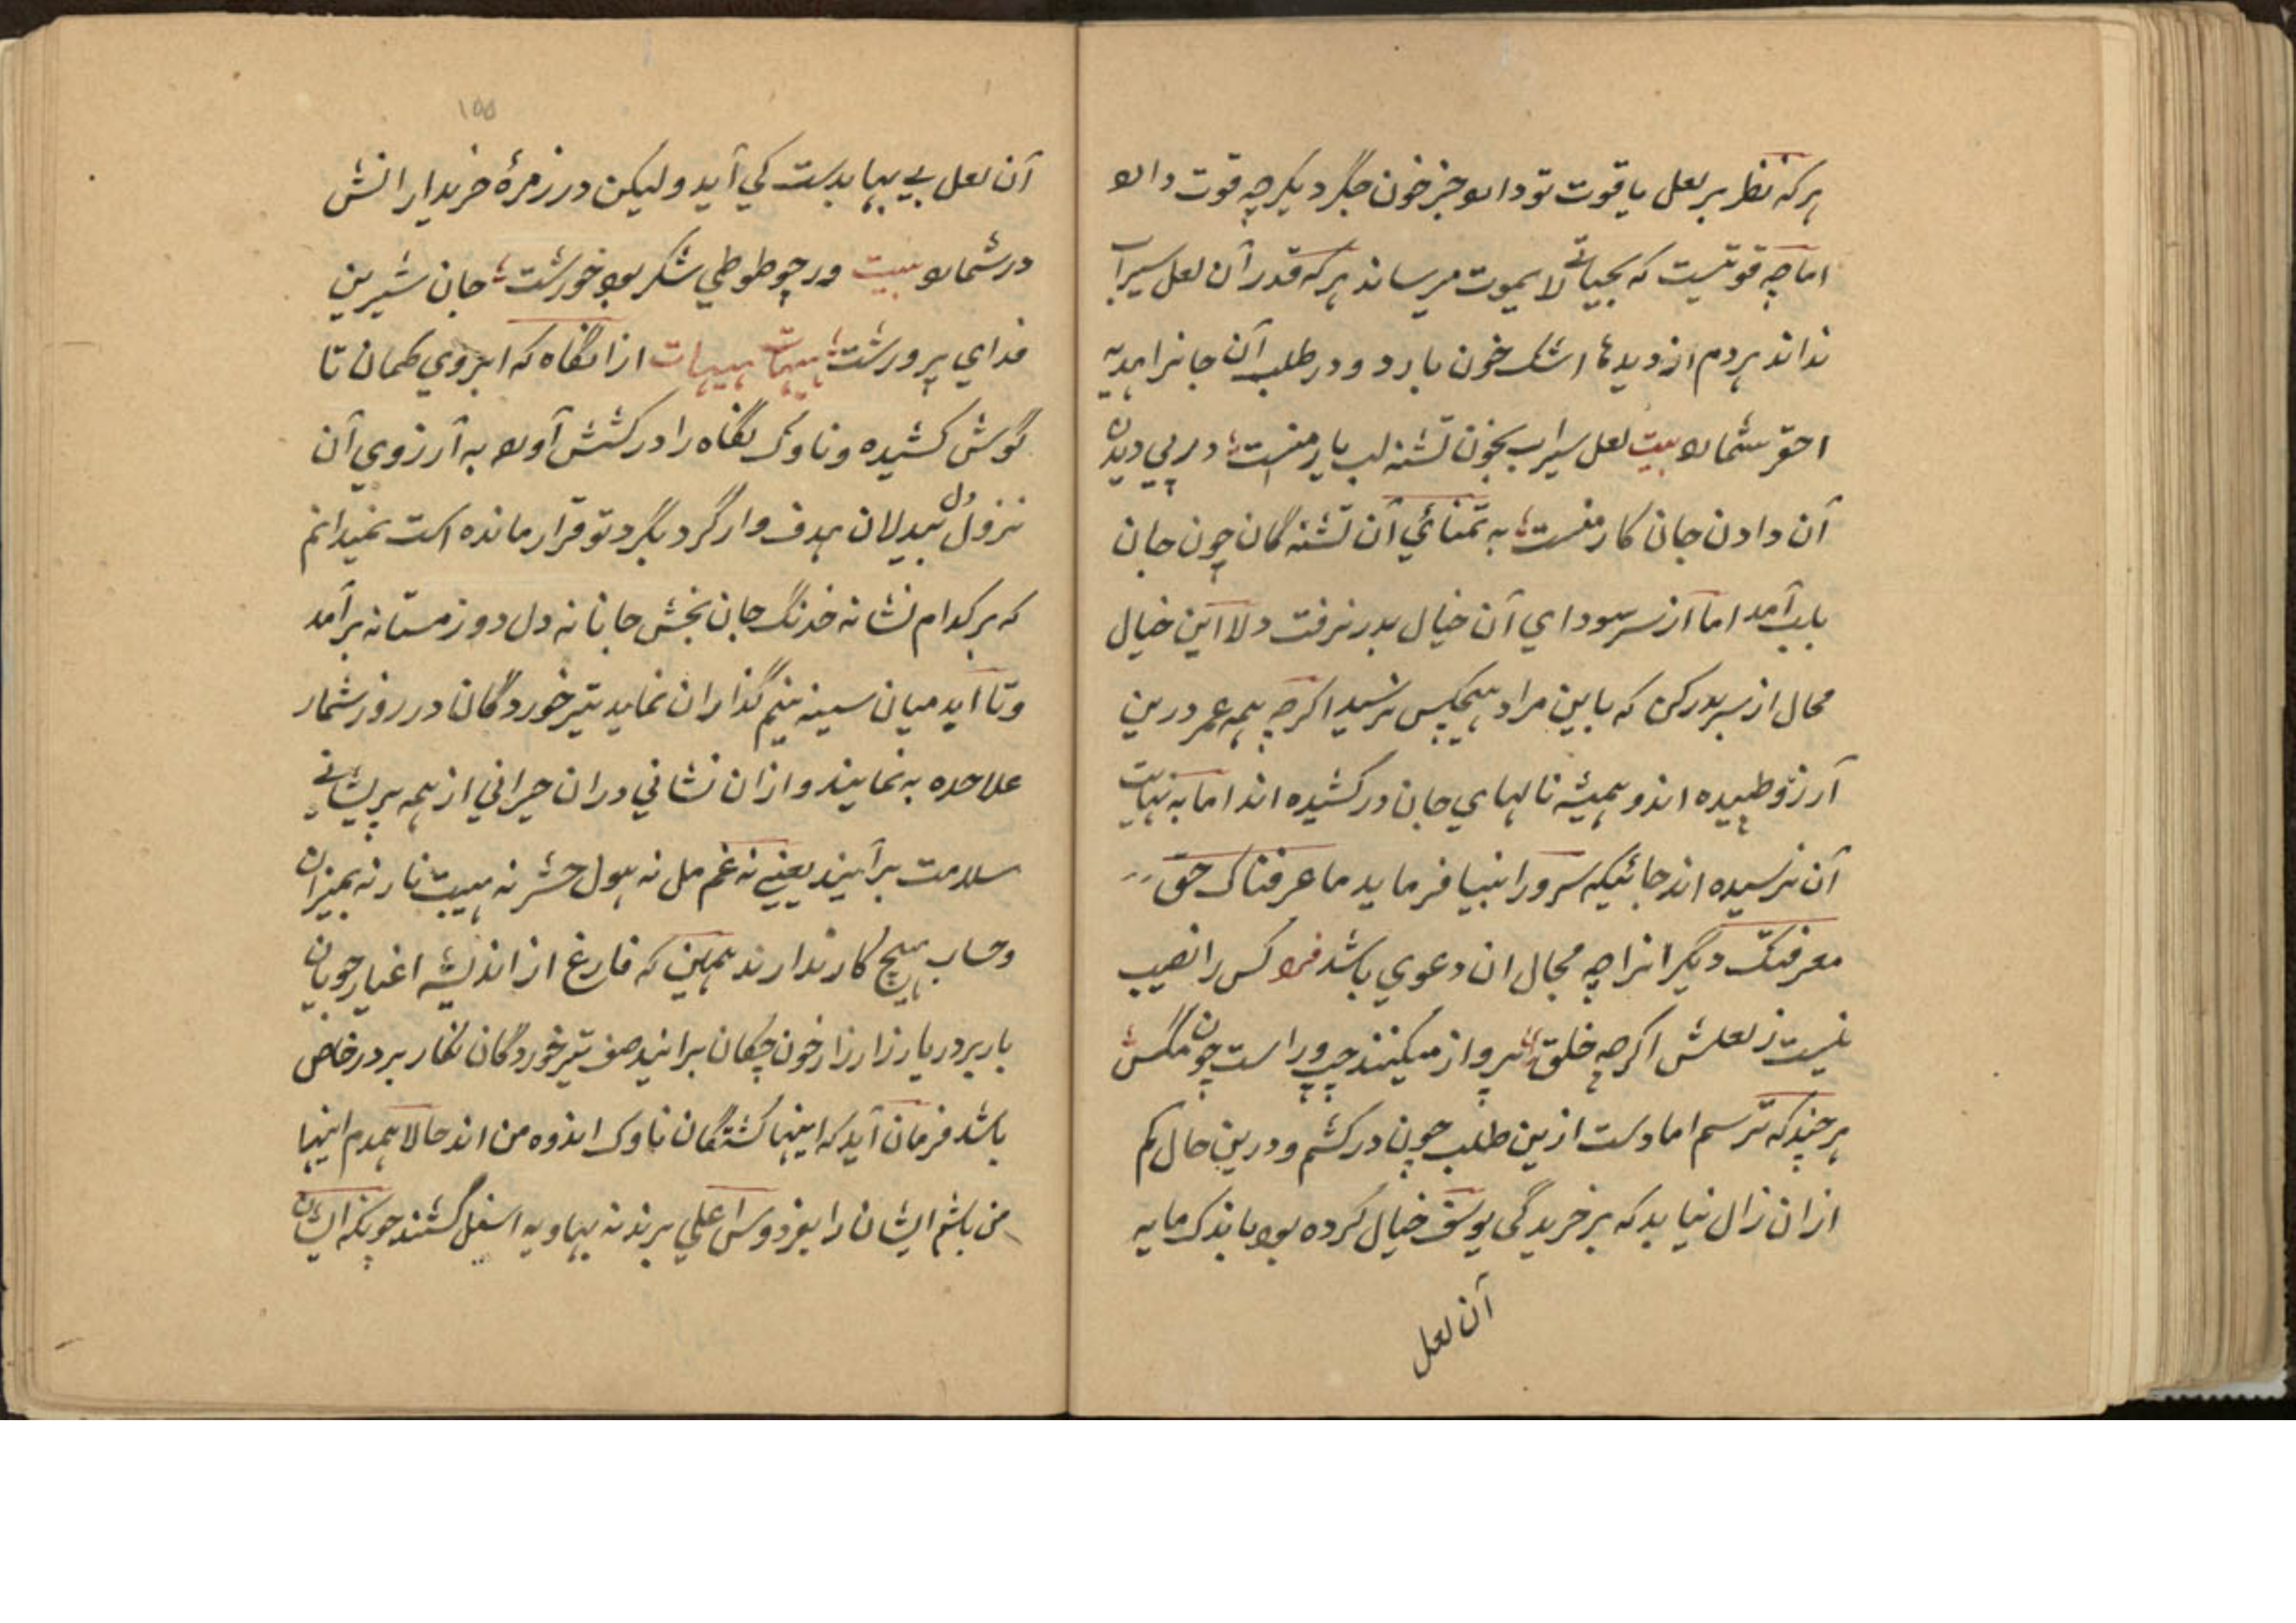 هر که نظر بر لعل یاقوت تو دارد جز خون جگر دیگر چه قوت دارد
اما چه قوتیست که بحیاتی لا یموت میرساند هر که قدر آن لعل سیراب
نداند هر دم از دیدها اشک خون بارد و در طلب آن جانرا هدیه
احقر شمارد بیت لعل سیراب بخون تشنه لب یار منست در پی دیدن
آن دادن جان کار منست به تمنائی آن تشنه گان چون جان
بلب آمد اما از سر سودای آن خیال بدر نرفت دلا این خیال
محال از سر بدر کن که باین مراد هیچکس نرسید اگرچه همه عمر درین
آرزو طپیده اند و همیشه نالهای جان در کشیده اند اما به نهایت
آن نرسیده اند جائیکه سرور انبیا فرماید ما عرفناک حق
معرفتک دیگرانرا چه مجال ان دعوی باشد فرد کس را نصیب
نیست ز لعلش اگرچه خلق پرواز میکنند چپ و راست چون مگس
هر چند که نرسم اما دست ازین طلب چون در کشم و درین حال کم
از ان زال نیاید که بر خریدگی یوسف خیال کرده بود باندک مایه
آن لعل
۱۵۵
آن لعل بی بها بدست کی آید ولیکن در زمرهٔ خریدارانش
در شمارد بیت ور چو طوطی شکر بود خورشت جان شیرین
فدای پرورشت هیهات هیهات از انگاه که ابروی کمان تا
گوش کشیده و ناوک نگاه را در کشش آورد به آرزوی آن
نزول دل بیدلان هدف وار گرد بگرد تو قرار مانده است نمیدانم
که بر کدام نشانه خدنگ جان بخش جانانه دل دوز مستانه برآمد
و تا آید میان سینه نیم گذاران نماید تیر خوردگان در روز شمار
علاحده به نمایند و از ان نشانی دران حیرانی از همه پریشانی
سلامت برآیند یعنی نه غم مل نه هول حشر نه هیبت نار نه بمیزان
و حساب هیچ کار ندارند همین که فارغ از اندیشه اغیار جویان
یار بر در یار زار زار خون چکان برانید صف تیر خوردگان نگار بر در خاص
باشد فرمان آید که اینها کشتگان ناوک اندوه من اند حالا همدم اینها
من باشم ایشان را بفردوس اعلی برند نه بهاویه اسفل گشتند چونکه ایشان